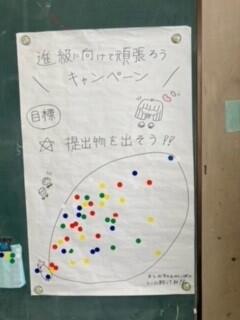 進級に向けて頑張ろう
キャンペーン
目標
☆ 提出物を出そう!!